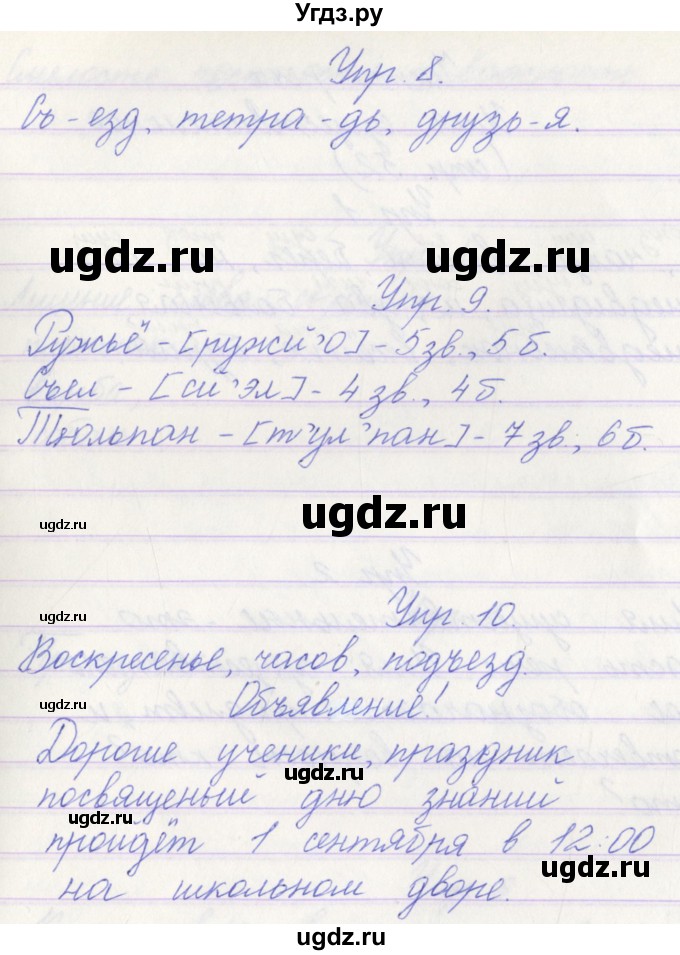 Угдз.ру
Упр. 8.
Съ-езд, тетра-дь, друзь-я.
ugdz.ru ugdz.ru
Упр. 9.
Ружьё - [ружй'О] - 5 зв., 5 б.
Съел - [сй'эл] - 4 зв., 4 б.
Тюльпан - [т'ул'пан] - 7 зв., 6 б.
ugdz.ru ugdz.ru
ugdz.ru
Упр. 10.
Воскресенье, часов, подъезд.
ugdz.ru
Объявление!
Дорогие ученики, праздник
ugdz.ru
посвященый дню знаний
ugdz.ru
пройдёт 1 сентября в 12:00
ugdz.ru
на школьном дворе.
ugdz.ru